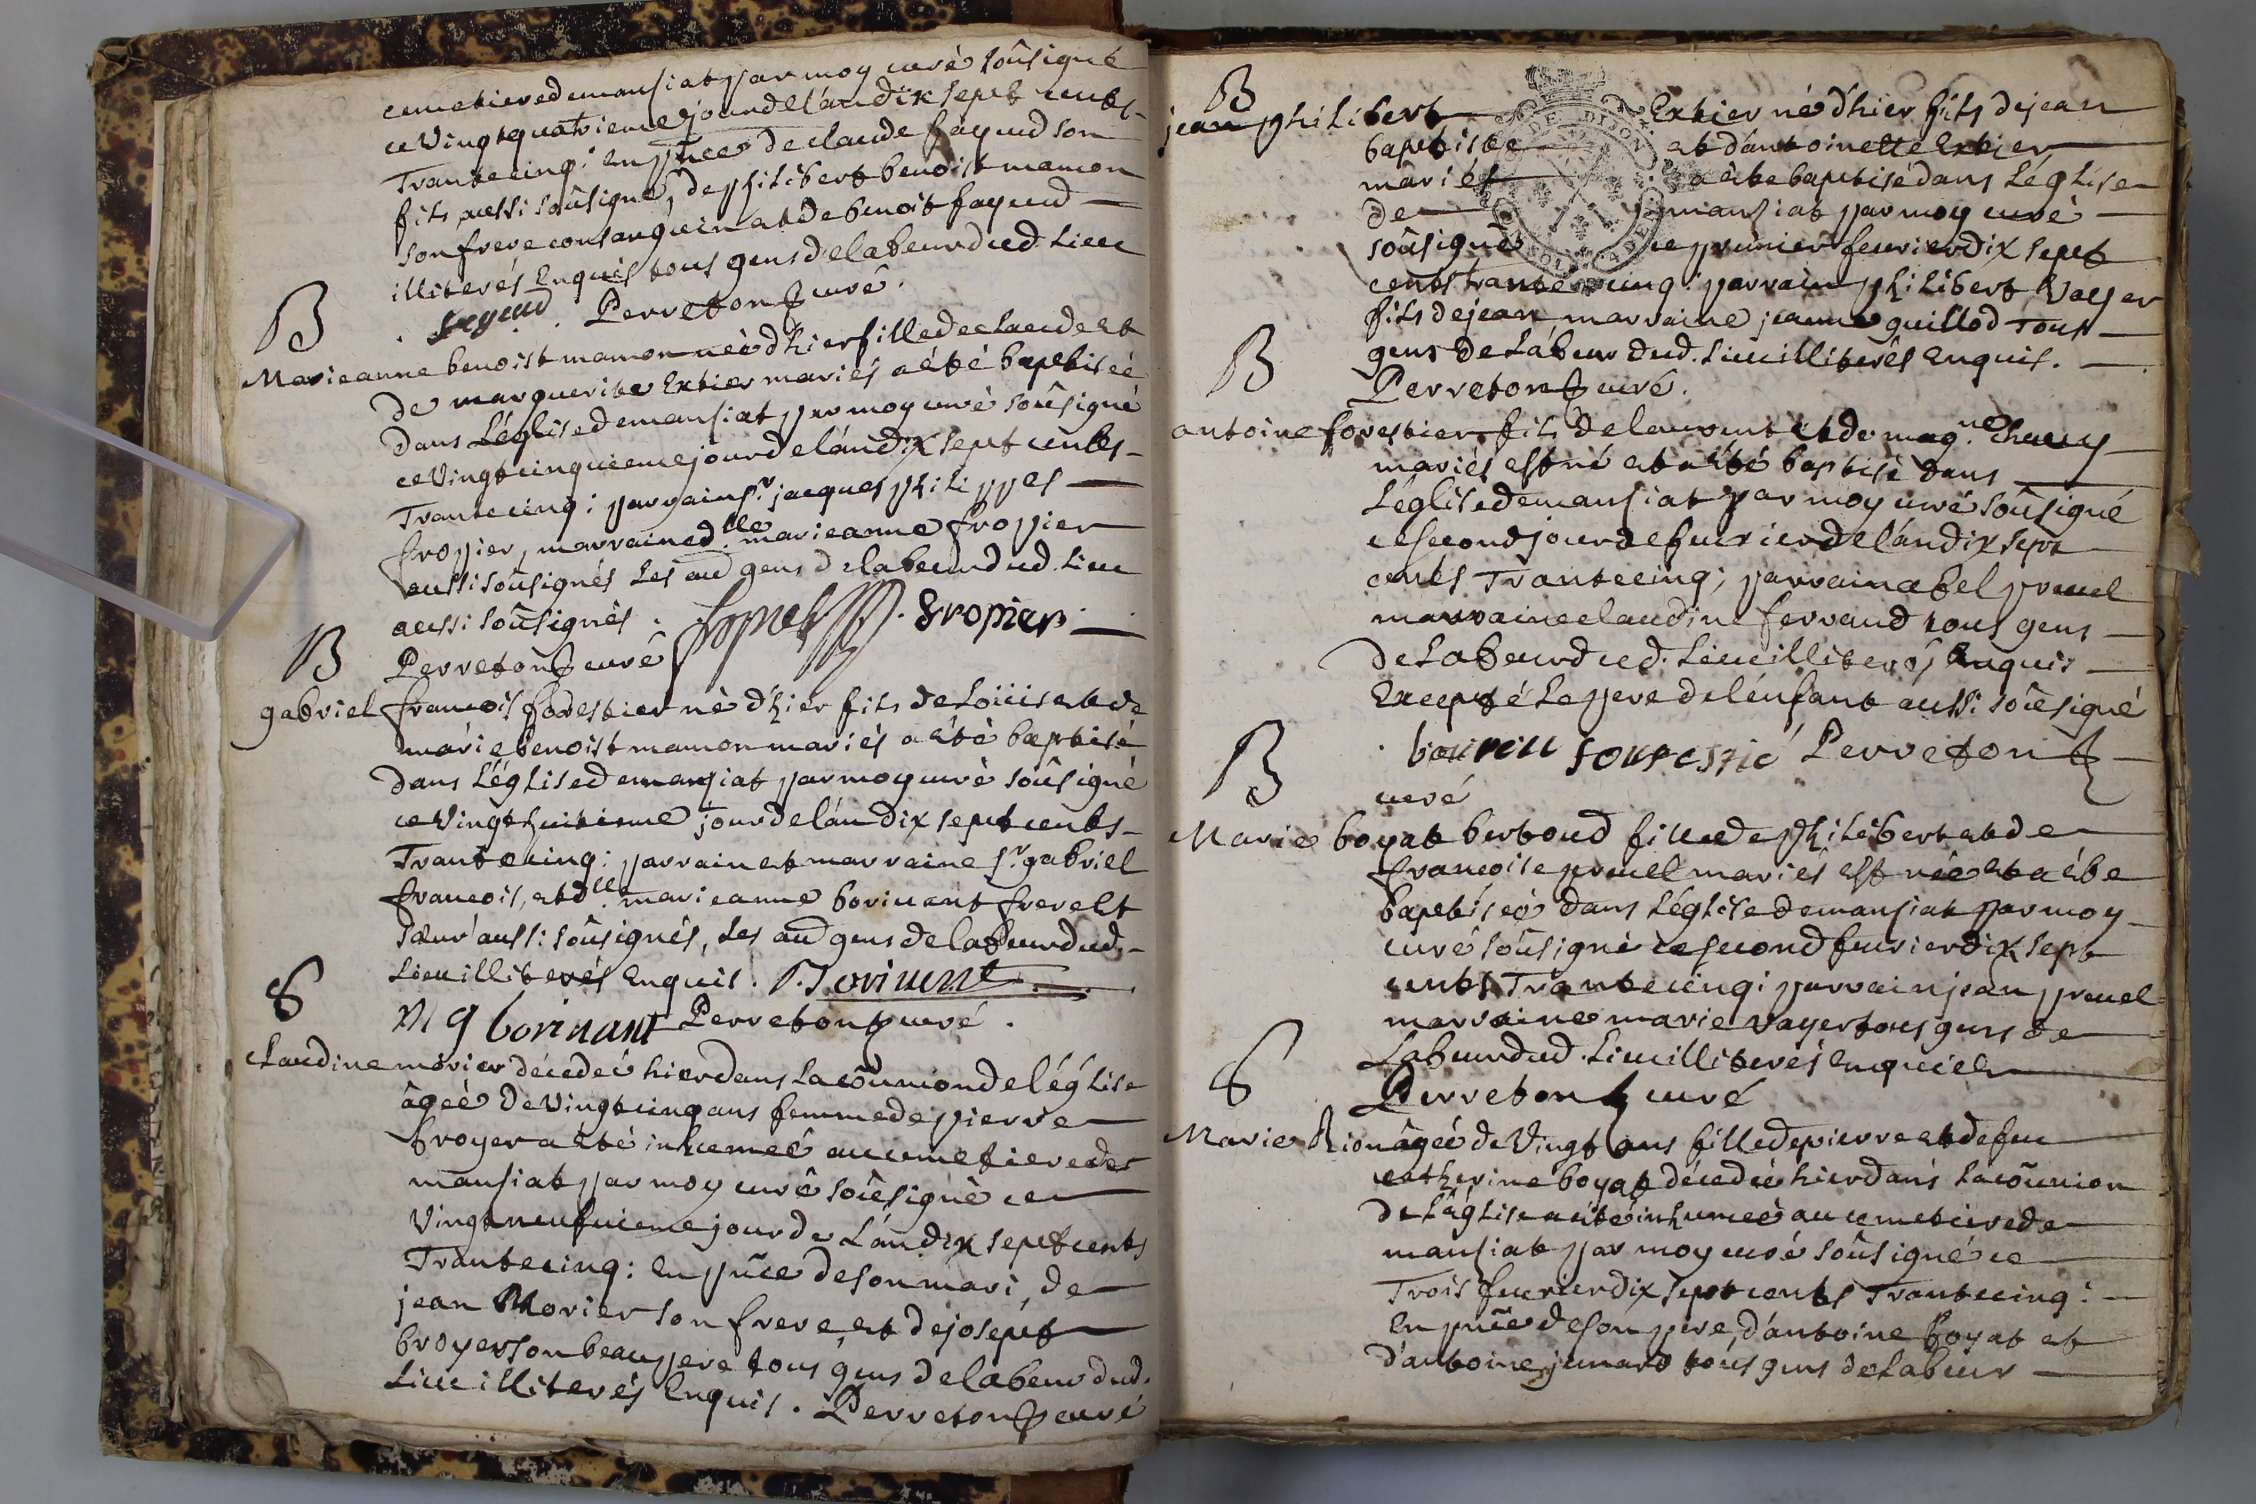 cemetiere de mansiat par moy curé soûsigné
ce Vingtquatrieme jour de l'an dix sept cents
Trantecinq: en pñce de claude fayeud son
fils aussi soûsigné, de philibert benoist mamon
son frere consanguin et de benoit fayeud
illiterés Enquis tous gens de labeur dud. Lieu
fayeud Perreton curé.
B
Marie anne benoist mamon neé d'hier fille de claude et
de marguerite Extier mariés a été baptiseé
dans L'églis de mansiat par moy curé soûsigné
ce Vingtcinquieme jour de l'an dix sept cents
Trantecinq: parrain sr. jacques philippes
fropier, marraine dlle. marieanne fropier
aussi soûsignés Les aud gens de labeur dud. Lieu
aussi soûsignés. fropier. fropier
Perreton curé
B
gabriel francois forestier né d'hier fils de Loüis et de
marie benoist mamon mariés a été baptisé
dans L'églis de mansiat par moy curé soûsigné
ce Vingthuitieme jour de l'an dix sept cents
Trantecinq: parrain et marraine sr. gabriel
francois, et dlle. marieanne borivent frere et
sœur aussi soûsignés, Les aud gens de labeur dud.
Lieu illiterés Enquis. Borivent
M g borinant Perreton curé.
S
Claudine morier décedeé hier dans La coûmion de l'églis
âgeé de Vingtcinq ans femme de pierre
broyer a été inhumeé au cemetiere de
mansiat par moy curé soûsigné ce
Vingtneufvieme jour de L'an dix sept cents
Trantecinq: En pñce de son mari, de
jean Morier son frere, et de joseph
broyer son beaupere tous gens de labeur dud.
Lieu illiterés Enquis. Perreton curé
B
jean philibert Extier né d'hier fils de jean
baptiste et d'antoinette Extier
mariés a été baptisé dans L'églis
de mansiat par moy curé
soûsigné ce prémier feuvrier dix sept
cents Trantecinq: parrain philibert Vayer
fils de jean marraine jeanne guillod Tous
gens de Labeur dud. Lieu illiterés Enquis.
Perreton curé.
B
antoine forestier fils de laurent et de magne. Chavy
mariés est né et a été baptisé dans
L'églis de mansiat par moy curé soûsigné
ce second jour de feuvrier de l'an dix sept
cents Trantecinq; parrain abel pruel
marraine claudine ferraud tous gens
de Labeur dud. Lieu illiterés Enquis
Excepté Le pere de l'énfant aussi soûsigné
Perreton
curé
B
Marie boyat bertoud fille de philibert et de
francoise pruel mariés est neé et a été
baptiseé dans L'églis de mansiat par moy
curé soûsigné ce second feuvrier dix sept
cents Trantecinq: parrain jean pruel
marraine marie vayer tous gens de
Labeur dud. Lieu illiterés Enquis
Perreton curé
S
Marie Rion âgeé de Vingt ans fille de pierre et de feu
catherine boyat décedeé hier dans La coûnion
de L'églis a été inhumeé au cemetiere de
mansiat par moy curé soûsigné ce
Trois feuvrier dix sept cents Trantecinq:
En pñce de son pere, d'antoine boyat et
d'antoine junard tous gens de Labeur